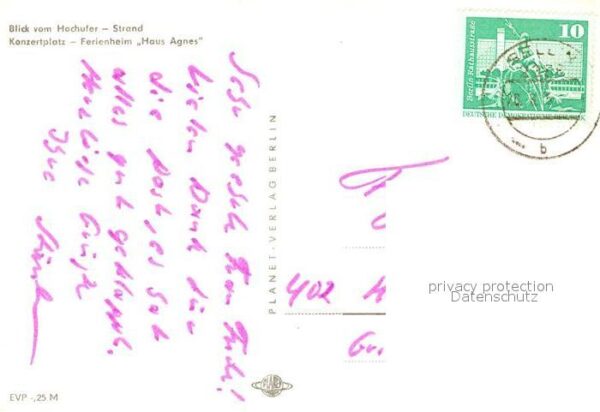 Blick vom Hochufer – Strand
Konzertplatz – Ferienheim „Haus Agnes"
Sehr geehrte Frau
vielen Dank für
die Post, es hat
alles gut geklappt.
Herzliche Grüße
Ihre
PLANET-VERLAG BERLIN
10
Berlin, Rathausstraße
DEUTSCHE DEMOKRATISCHE REPUBLIK
b
402
privacy protection
Datenschutz
EVP -,25 M
PLANET